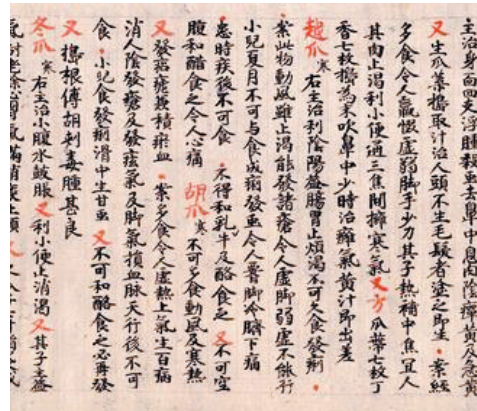 主治身面四支浮腫殺虫去鼻中息肉陰癉黃及急黃
又生瓜蔕搗取汁治人頭不生毛髮者塗之即生 案經
多食令人羸惙虛弱脚手少力其子熱補中焦宜人
其肉止渴利小便通三焦間擁寒氣 又方瓜蔕七枚丁
香七枚搗為末吹鼻中少時治癰氣黃汁即出差
越瓜 寒 右主治利陰陽益腸胃止煩渴不可久食發痢
案此物動風雖止渴能發諸瘡令人虛脚弱虛不能行
小兒夏月不可与食成痢發虫令人腰脚冷臍下痛
患時疾後不可食 亦得和乳牛及酪食之 又不可空
腹和醋食之令人心痛 胡瓜 寒 不可多食動風及寒熱
又發痃瘧兼積瘀血 案多食令人虛熱上氣生百病
消人陰發瘡及發痃氣及脚氣損血脉天行後不可
食 小兒食發痢滑中生甘虫 又不可和酪食之必再發
又搗根傅胡刺毒腫甚良
冬瓜 寒 右主治小腹水鼓脹 又利小便止消渴 又其子主益